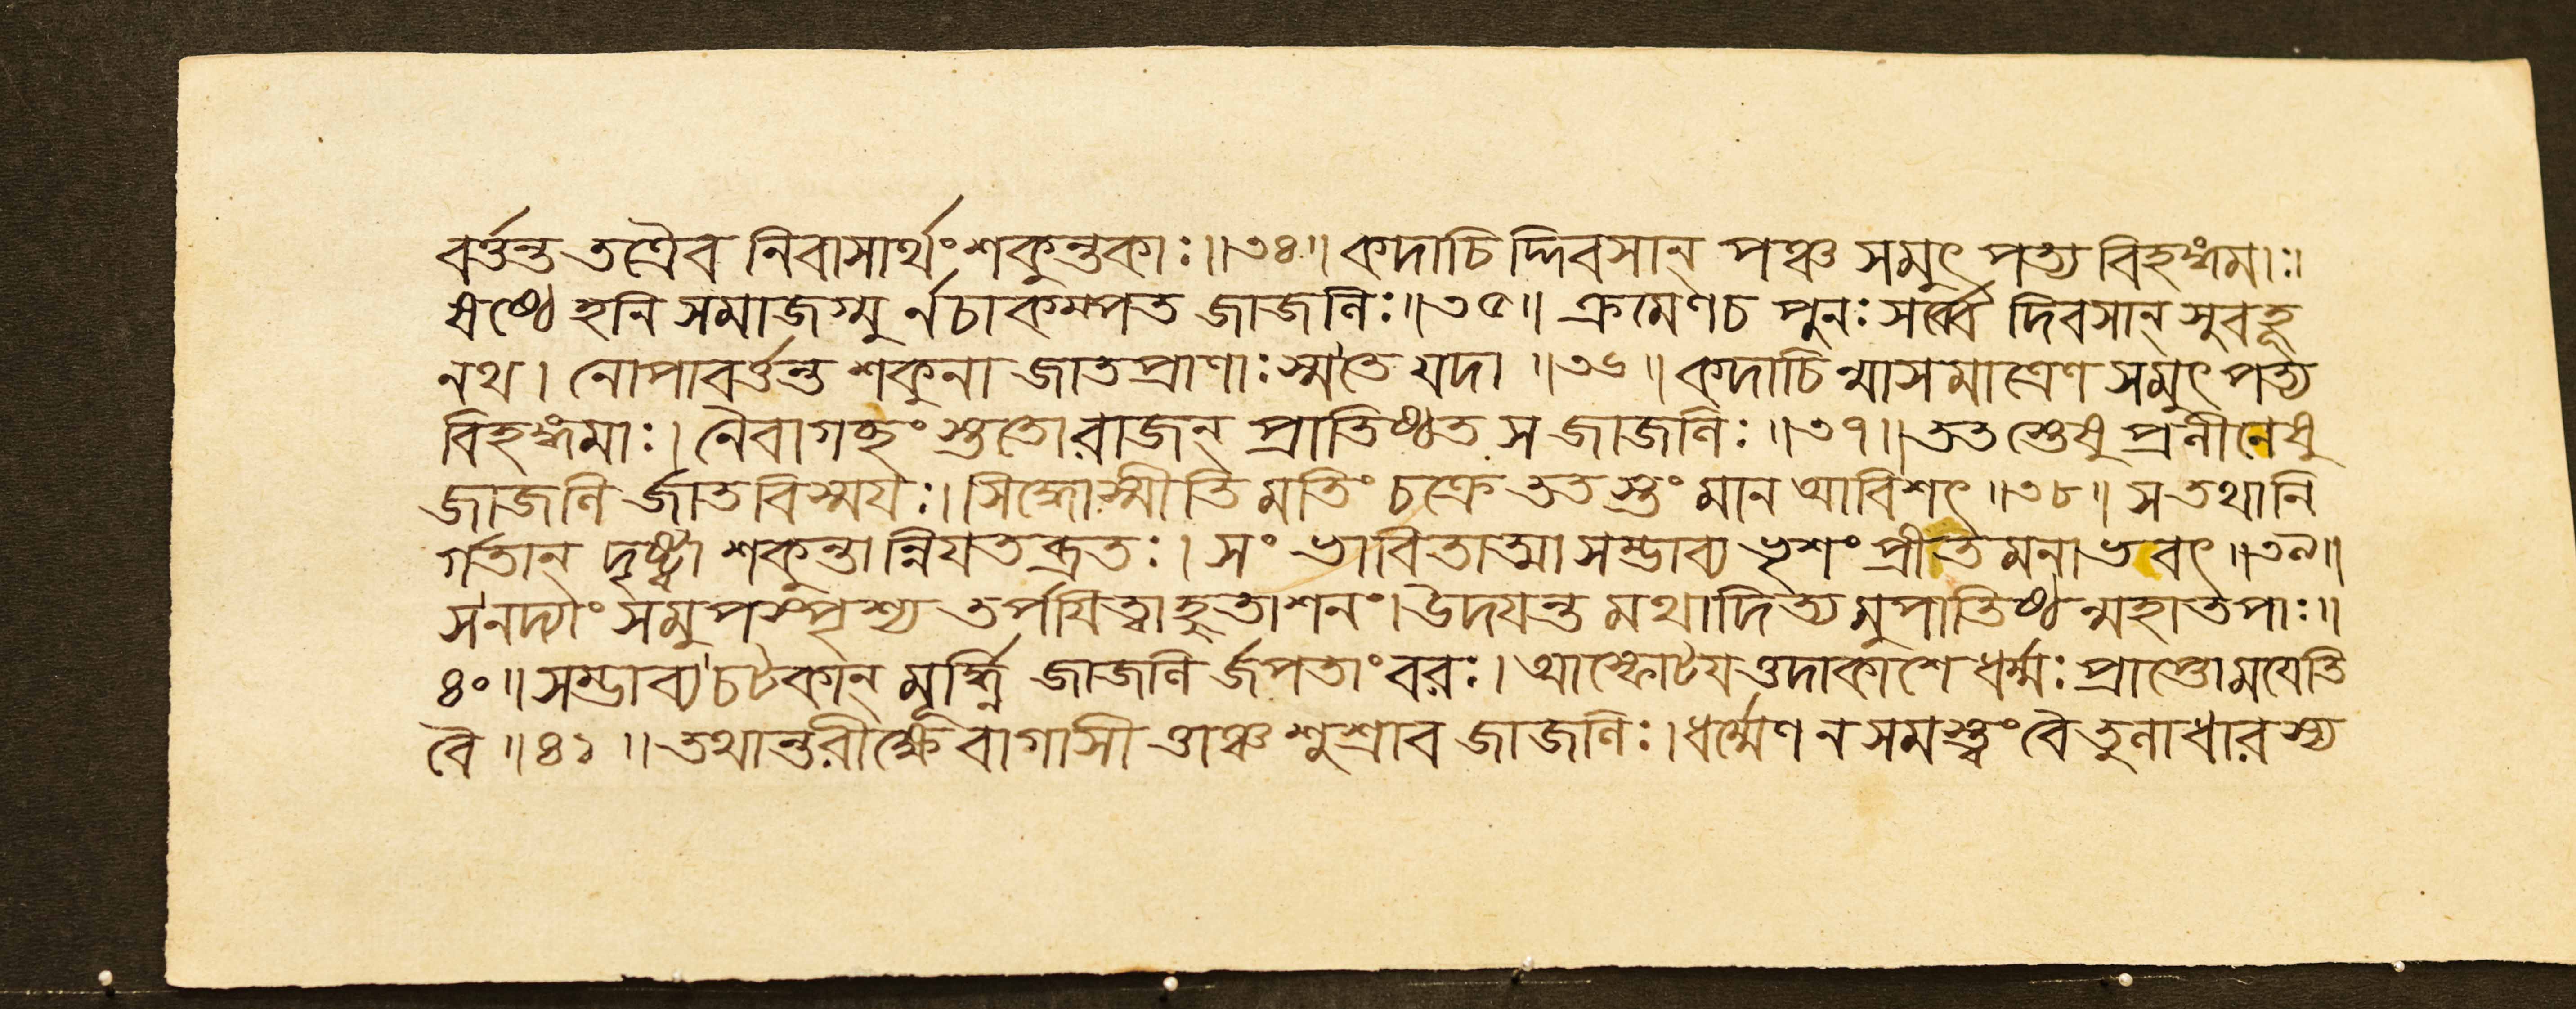 বর্ত্তন্ত তত্রৈব নিবাসার্থং শকুন্তকাঃ॥৩৪॥ কদাচিদ্দিবসান্ পঞ্চ সমুৎপত্য বিহঙ্গমাঃ॥
ষষ্ঠেহনি সমাজগ্মু র্নচাকম্পত জাজলিঃ॥৩৫॥ ক্রমেণচ পুনঃ সর্ব্বে দিবসান্ সুবহূ
নথ। নোপাবর্ত্তন্ত শকুনা জাতপ্রাণাঃ স্মতে যদা ॥৩৬॥ কদাচিন্মাসমাত্রেণ সমুৎপত্য
বিহঙ্গমাঃ। নৈবাগচ্ছং স্ততো রাজন্ প্রাতিষ্ঠত স জাজলিঃ॥৩৭॥ ততস্তেষু প্রলীনেষু
জাজলি র্জাতবিস্ময়ঃ॥ সিদ্ধোস্মীতি মতিং চক্রে ততস্তং মান আবিশৎ॥৩৮॥ স তথা নি
র্গতান্ দৃষ্ট্বা শকুন্তান্নিয়তব্রতঃ। সংভাবিতাত্মা সম্ভাব্য ভৃশং প্রীতমনাভবৎ॥৩৯॥
স নদ্যাং সমুপস্পৃশ্য তর্পয়িত্বা হুতাশনং। উদয়ন্ত মথাদিত্য মুপাতিষ্ঠন্মহাতপাঃ॥
৪০॥ সম্ভাব্য চটকান্ মূর্দ্ধ্নি জাজলি র্জপতাং বরঃ। আস্ফোটয়ত্তদাকাশে ধর্ম্মঃ প্রাপ্তোময়েতি
বৈ॥৪১॥ তথান্তরীক্ষে বাগাসী ত্তাঞ্চ শুশ্রাব জাজলিঃ। ধর্ম্মেণ ন সমস্ত্বং বৈ তুলাধারস্য